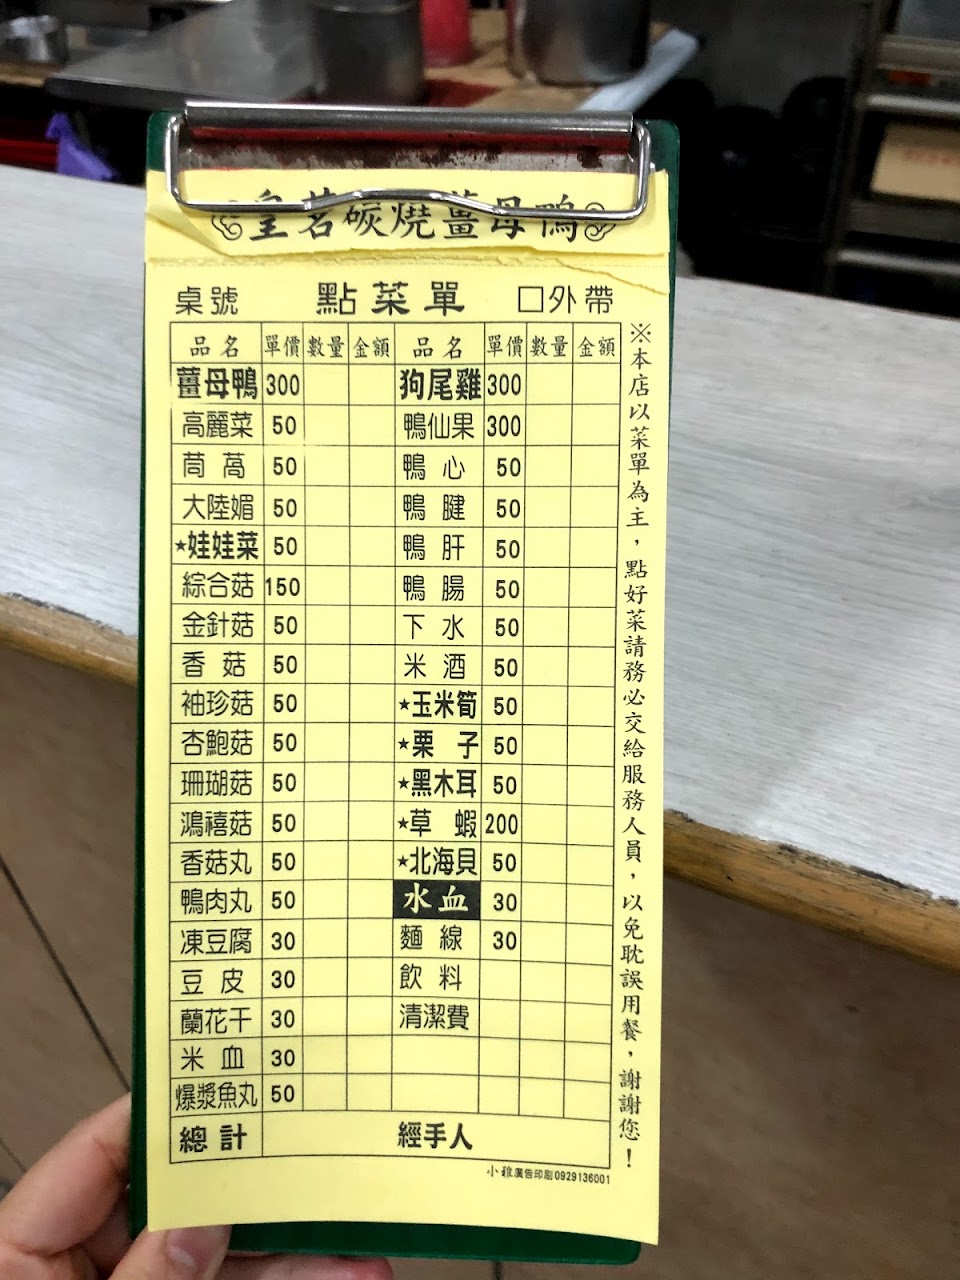 皇茗碳燒薑母鴨
桌號 點菜單 □外帶
品名 單價 數量 金額 品名 單價 數量 金額
薑母鴨 300 狗尾雞 300
高麗菜 50 鴨仙果 300
茼蒿 50 鴨心 50
大陸媚 50 鴨腱 50
★娃娃菜 50 鴨肝 50
綜合菇 150 鴨腸 50
金針菇 50 下水 50
香菇 50 米酒 50
袖珍菇 50 ★玉米筍 50
杏鮑菇 50 ★栗子 50
珊瑚菇 50 ★黑木耳 50
鴻禧菇 50 ★草蝦 200
香菇丸 50 ★北海貝 50
鴨肉丸 50 水血 30
凍豆腐 30 麵線 30
豆皮 30 飲料
蘭花干 30 清潔費
米血 30
爆漿魚丸 50
總計 經手人
※本店以菜單為主，點好菜請務必交給服務人員，以免耽誤用餐，謝謝您！
小雅廣告印刷0929136001